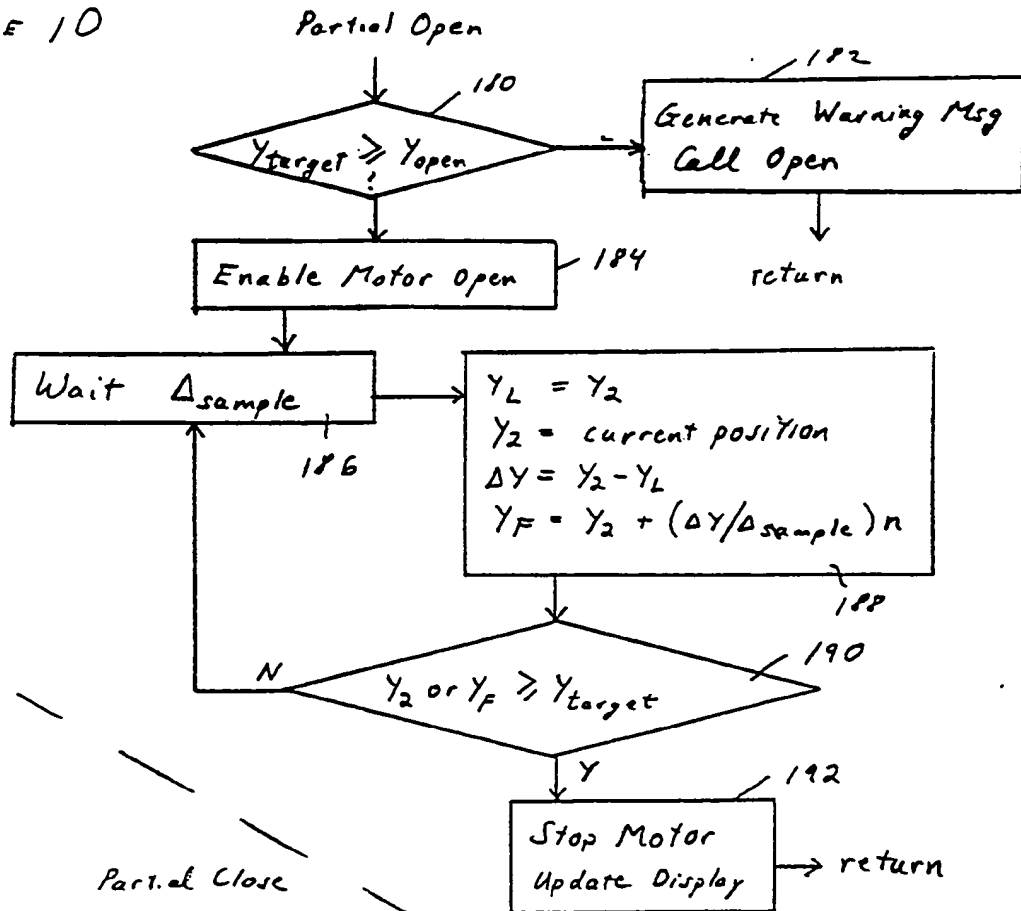 E 10
Partial Open
180
Y_target ≥ Y_open
?
182
Generate Warning Msg
Call Open
return
Enable Motor Open
184
Wait Δ_sample
186
Y_L = Y_2
Y_2 = current position
ΔY = Y_2 - Y_L
Y_F = Y_2 + (ΔY/Δ_sample) n
188
190
Y_2 or Y_F ≥ Y_target
N
Y
192
Stop Motor
Update Display
return
Partial Close